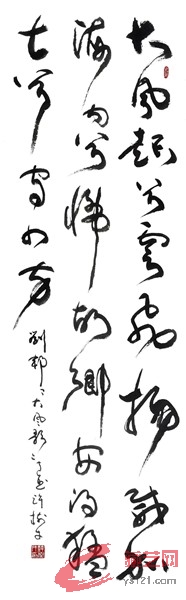 大風起兮雲飛揚威加
海内兮歸故鄉安得猛
士兮守四方
劉邦大風歌
艺网
ys121.com